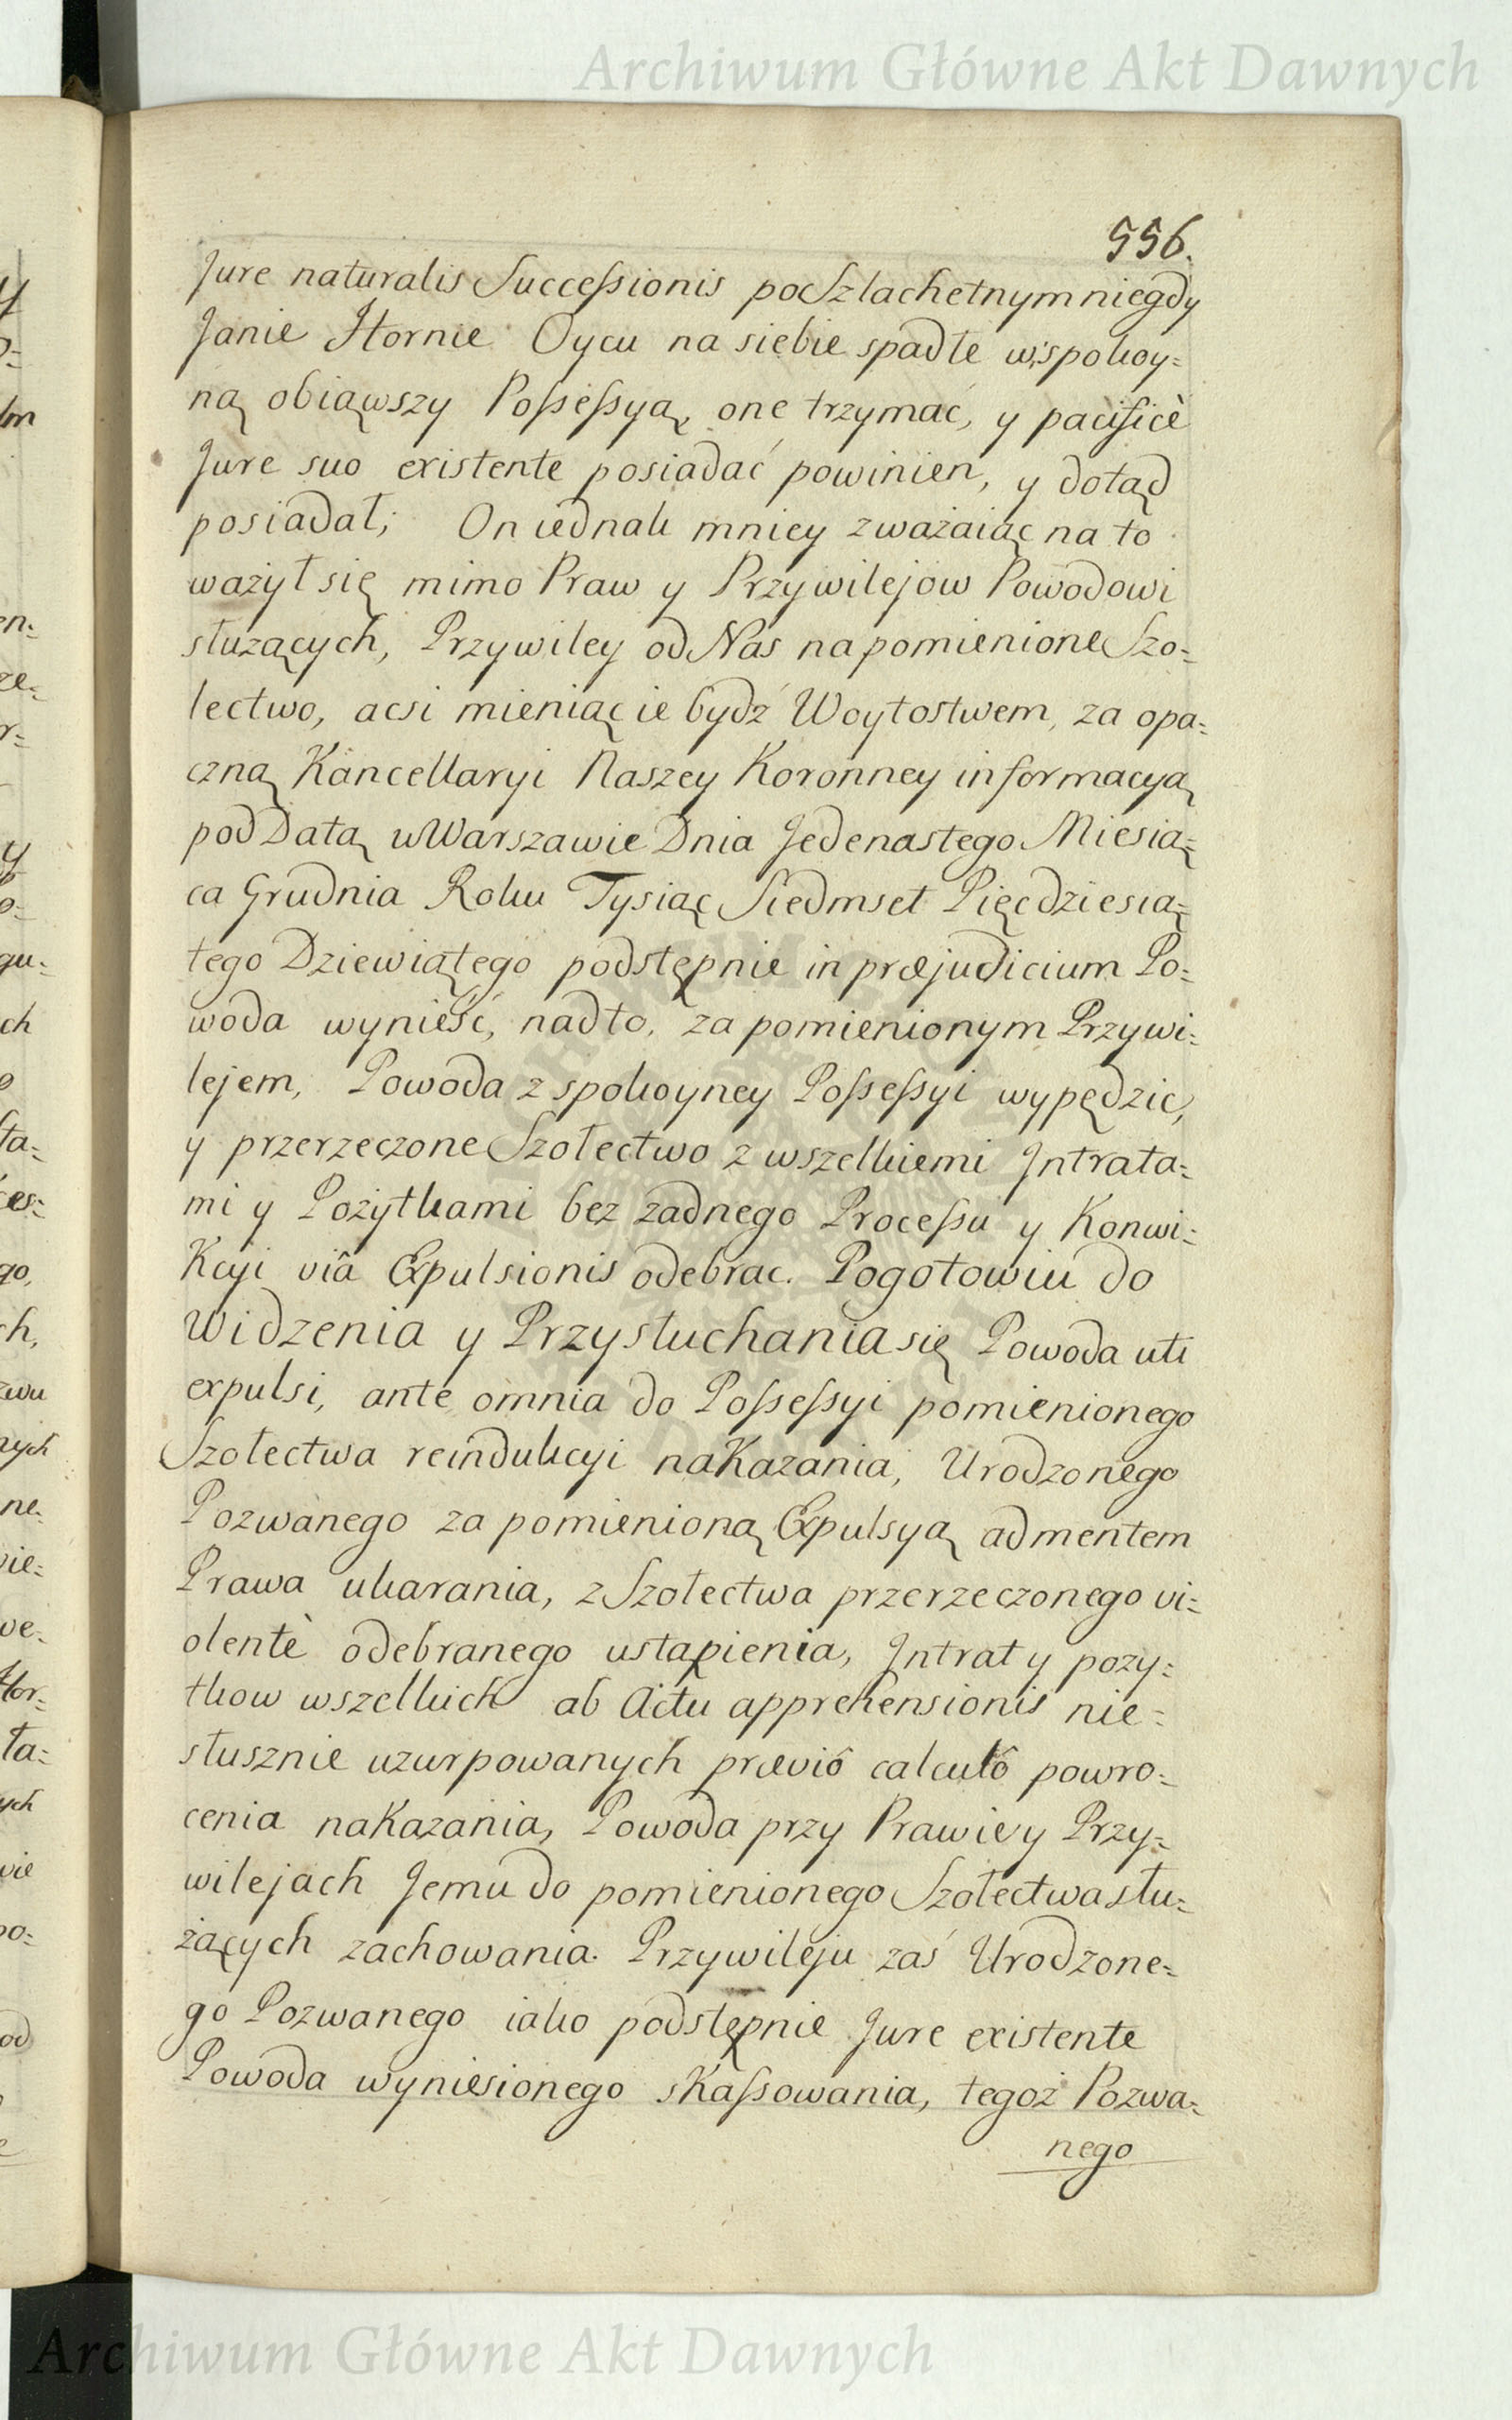 Archiwum Główne Akt Dawnych
556.
Jure naturalis Successionis po Szlachetnym niegdy
Janie Hornie Oycu na siebie spadłe w spokoy=
ną obiąwszy Possessyą, one trzymać, y pacificè
Jure suo existente posiadać powinien, y dotąd
posiadał; On iednak mniey zważaiąc na to
ważył się mimo Praw y Przywilejow Powodowi
służących, Przywiley od Nas na pomienione Szo=
lectwo, acsi mieniąc ie bydź Woytostwem, za opa=
czną Kancellaryi Naszey Koronney informacyą
pod Datą w Warszawie Dnia Jedenastego Miesią=
ca Grudnia Roku Tysiąc Siedmset Pięcdziesią=
tego Dziewiątego podstępnie in præjudicium Po=
woda wynieść, nadto, za pomienionym Przywi=
lejem, Powoda z spokoyney Possessyi wypędzic,
y przerzeczone Szołectwo z wszelkiemi Jntrata=
mi y Pożytkami bez żadnego Processu y Konwi=
Kcyi viâ Expulsionis odebrac. Pogotowiu do
Widzenia y Przysłuchania się Powoda uti
expulsi, ante omnia do Possessyi pomienionego
Szołectwa reindukcyi naKazania, Urodzonego
Pozwanego za pomienioną Expulsyą ad mentem
Prawa ukarania, z Szołectwa przerzeczonego vi=
olentè odebranego ustąpienia, Jntrat y pozy=
tkow wszelkich ab Actu apprehensionis nie=
słusznie uzurpowanych præviô calculô powro=
cenia naKazania, Powoda przy Prawie y Przy=
wilejach Jemu do pomienionego Szołectwa słu=
żących zachowania. Przywileju zaś Urodzone=
go Pozwanego iako podstępnie Jure existente
Powoda wyniesionego sKassowania, tegoż Pozwa=
nego
Archiwum Główne Akt Dawnych